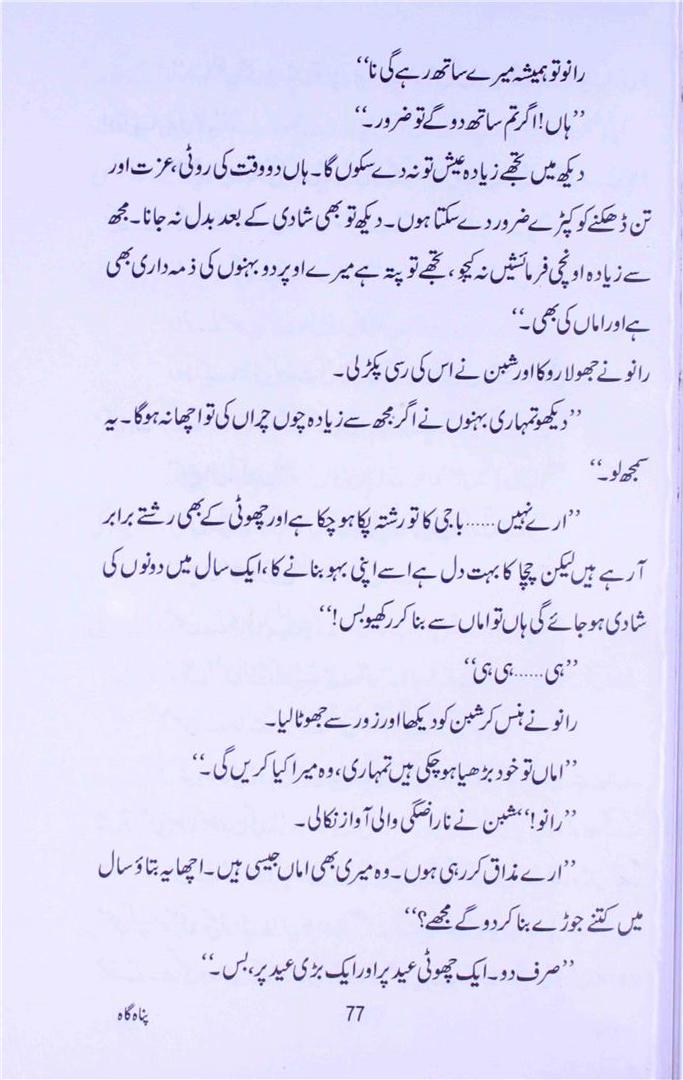 رانو تو ہمیشہ میرے ساتھ رہے گی نا‘‘
’’ہاں! اگر تم ساتھ دو گے تو ضرور۔‘‘
دیکھ میں تجھے زیادہ عیش تو نہ دے سکوں گا۔ ہاں دو وقت کی روٹی، عزت اور
تن ڈھکنے کو کپڑے ضرور دے سکتا ہوں۔ دیکھ تو بھی شادی کے بعد بدل نہ جانا۔ مجھ
سے زیادہ اونچی فرمائشیں نہ کیجو، تجھے تو پتہ ہے میرے اوپر دو بہنوں کی ذمہ داری بھی
ہے اور اماں کی بھی۔‘‘
رانو نے جھولا روکا اور شبن نے اس کی رسی پکڑ لی۔
’’دیکھو تمہاری بہنوں نے اگر مجھ سے زیادہ چوں چراں کی تو اچھا نہ ہوگا۔ یہ
سمجھ لو۔‘‘
’’ارے نہیں...... باجی کا تو رشتہ پکا ہو چکا ہے اور چھوٹی کے بھی رشتے برابر
آرہے ہیں لیکن چچا کا بہت دل ہے اسے اپنی بہو بنانے کا، ایک سال میں دونوں کی
شادی ہو جائے گی ہاں تو اماں سے بنا کر رکھیو بس!‘‘
’’ہی...... ہی ہی‘‘
رانو نے ہنس کر شبن کو دیکھا اور زور سے جھوٹا لیا۔
’’اماں تو خود بڑھیا ہو چکی ہیں تمہاری، وہ میرا کیا کریں گی۔‘‘
’’رانو!‘‘ شبن نے ناراضگی والی آواز نکالی۔
’’ارے مذاق کر رہی ہوں۔ وہ میری بھی اماں جیسی ہیں۔ اچھا یہ بتاؤ سال
میں کتنے جوڑے بنا کر دو گے مجھے؟‘‘
’’صرف دو۔ ایک چھوٹی عید پر اور ایک بڑی عید پر، بس۔‘‘
77 پناہ گاہ